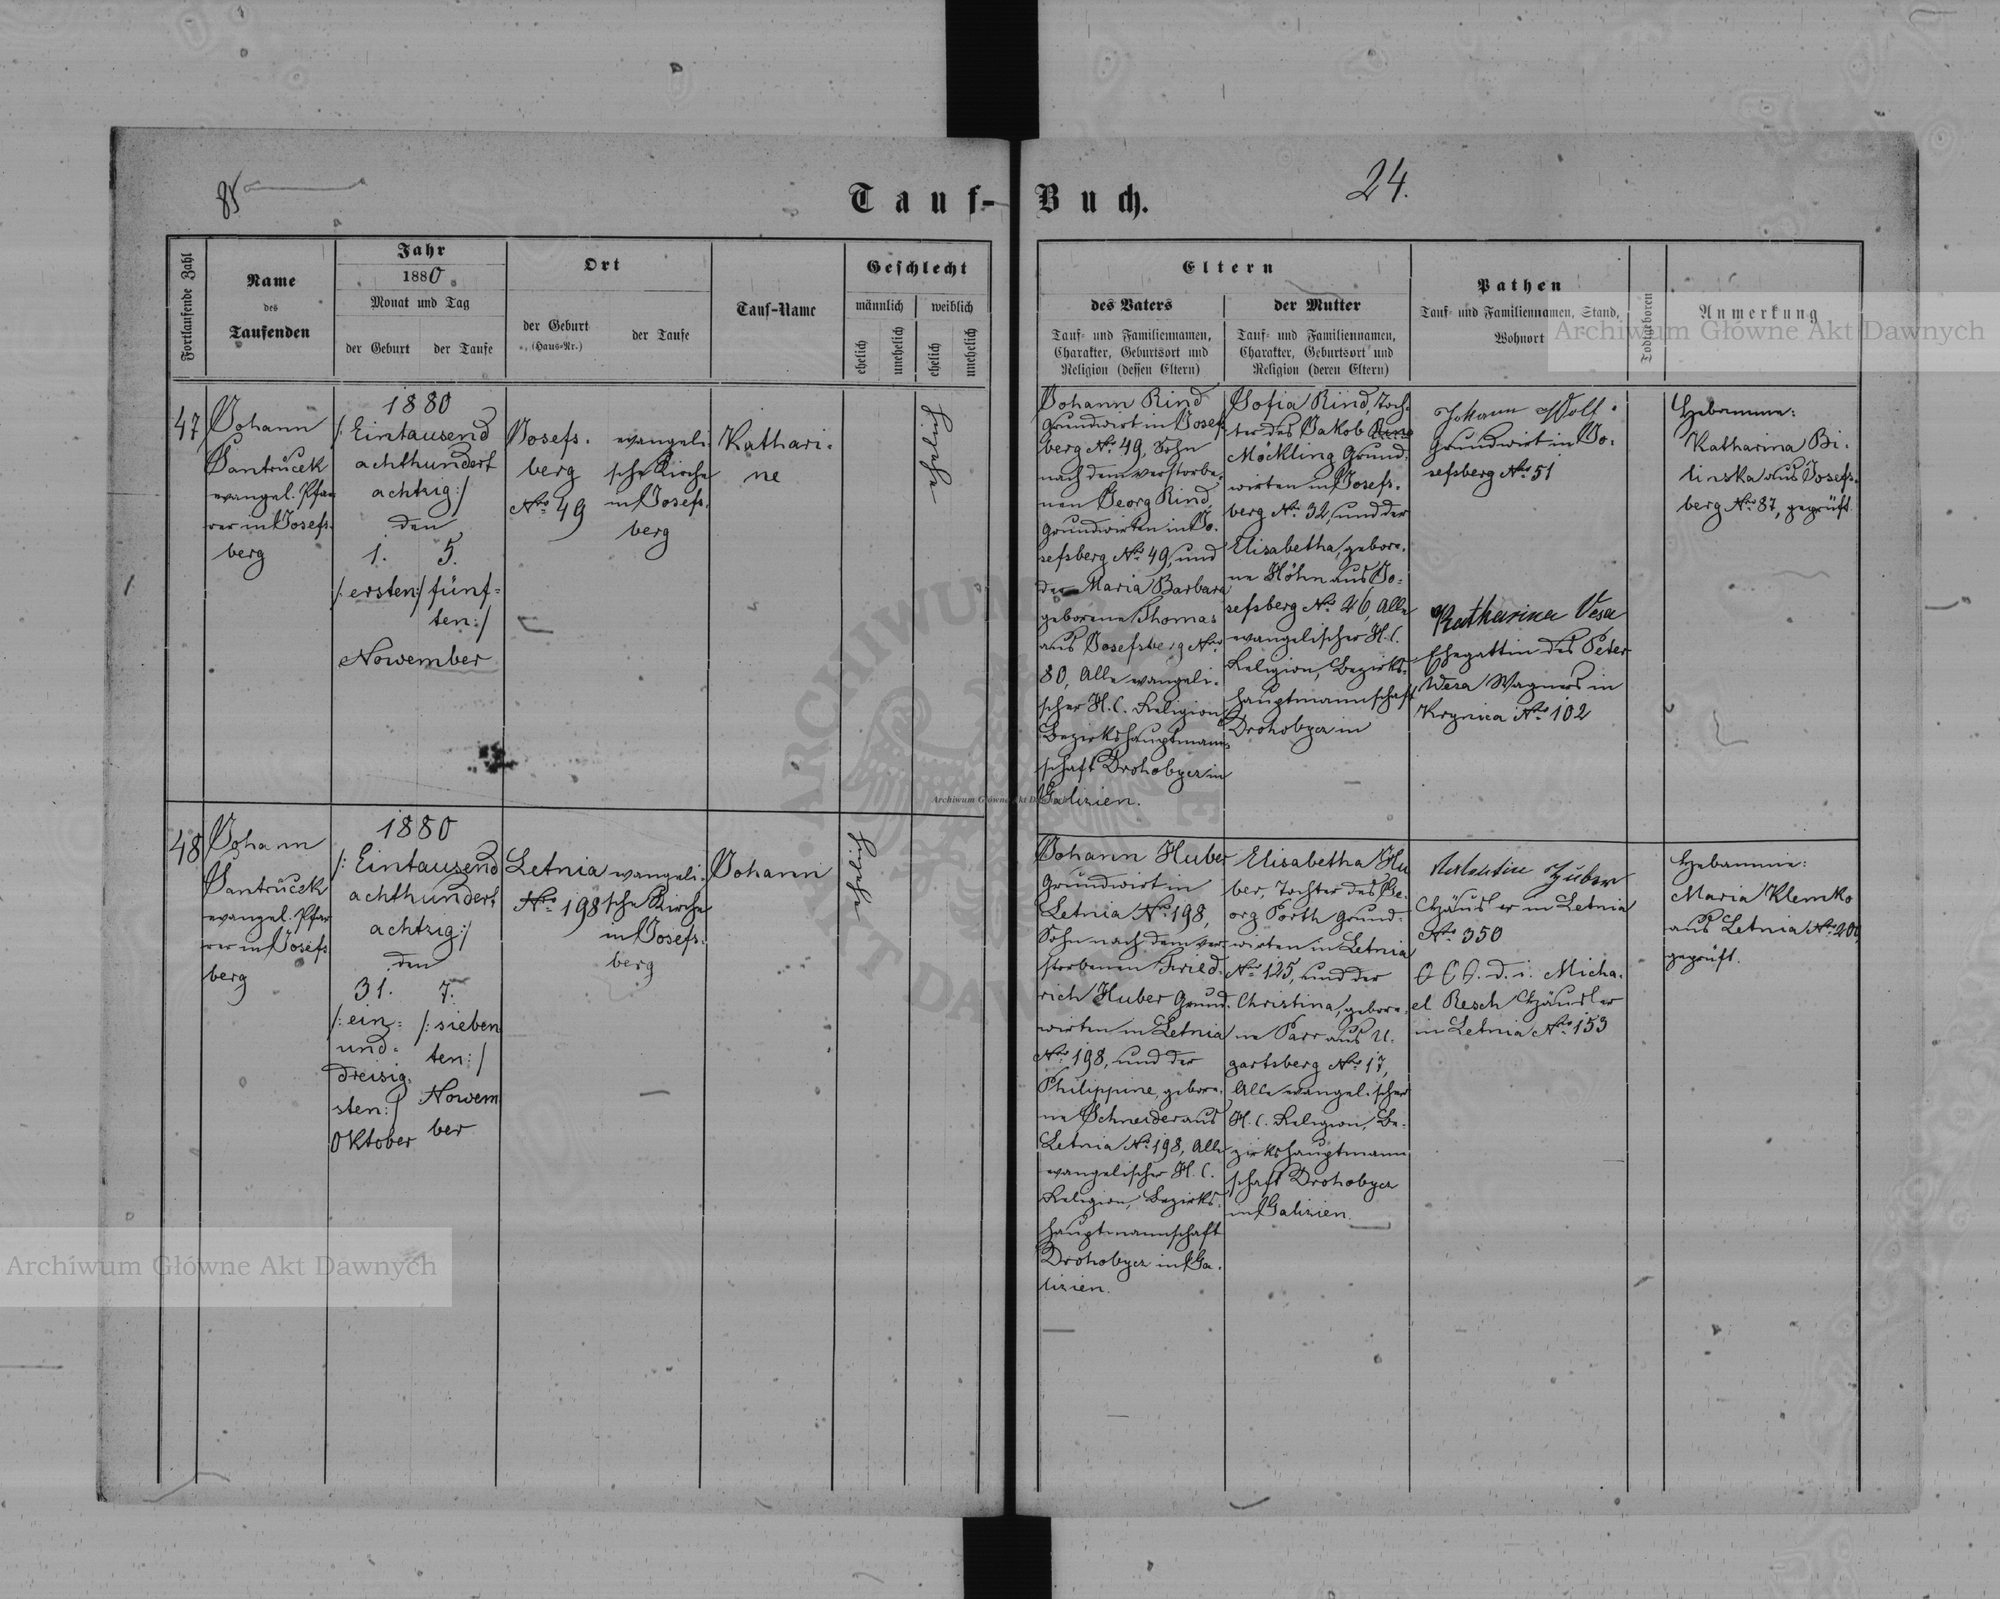 85
Tauf-Buch.
24.
Fortlaufende Zahl
Name
des
Taufenden
Jahr
1880.
Monat und Tag
der Geburt
der Taufe
Ort
der Geburt
(Haus-Nr.)
der Taufe
Tauf-Name
Geschlecht
männlich
weiblich
ehelich
unehelich
ehelich
unehelich
Eltern
des Vaters
Tauf- und Familiennamen,
Charakter, Geburtsort und
Religion (dessen Eltern)
der Mutter
Tauf- und Familiennamen,
Charakter, Geburtsort und
Religion (deren Eltern)
Pathen
Tauf- und Familiennamen, Stand,
Wohnort
Todtgeboren
Anmerkung
Archiwum Główne Akt Dawnych
47
Johann
Santrůcek
evangel. Pfar
rer in Josefs.
berg
1880
/: Eintausend
achthundert
achtzig :/
den
1. 5.
/: ersten :/ fünf=
ten :/
November
Josefs.
berg
Nro 49
evangeli
sche Kirche
in Josefs.
berg
Kathari-
ne
Johann Rind
Grundwirt in Josefs
berg Nro 49, Sohn
nach dem verstorbe.
nen Georg Rind,
Grundwirten in Jo.
sefsberg Nro 49, und
der Maria Barbara
geborene Thomas
aus Josefsberg Nro
80, Alle evangeli.
scher H. C. Religion
Bezirkshauptmann=
schaft Drohobycz in
Galizien.
Sofia Rind, Toch-
ter des Jakob
Möckling Grund.
wirten in Josefs.
berg Nro 32, und der
Elisabetha, gebore.
ne Höhn aus Jo=
sefsberg Nro 26, Alle
evangelischer H. C.
Religion, Bezirks=
hauptmannschaft
Drohobycz in
Johann Wolf
Grundwirt in Jo=
sefsberg Nro 51
Katharina Vesa
Ehegattin des Peter
Wesa Wagners in
Krynica Nro 102
Hebamme:
Katharina Bi.
linska aus Josefs.
berg Nro 87, geprüft
48
Johann
Santrůcek
evangel. Pfar
rer in Josefs
berg
1880
/: Eintausend
achthundert
achtzig :/
den
31. 7.
/: ein= /: sieben
und= ten :/
dreisig= Novem
sten :/ ber
Oktober
Letnia
Nro 198
evangeli.
sche Kirche
in Josefs.
berg
Johann
Johann Huber
Grundwirt in
Letnia Nro 198,
Sohn nach dem ver=
storbenen Fried.
rich Huber Grund.
wirten in Letnia
Nro 198, und der
Philippine, gebore.
ne Schneider aus
Letnia Nro 198, Alle
evangelischer H. C.
Religion, Bezirks.
hauptmannschaft
Drohobycz in Ga.
lizien.
Elisabetha Hu
ber, Tochter des Ge.
org Porth Grund=
wirten in Letnia
Nro 125, und der
Christina, gebore.
ne Parr aus U.
gartsberg Nro 17,
Alle evangelischer
H. C. Religion, Be=
zirkshauptmann
schaft Drohobycz
in Galizien
Valentin Huber
Häusler in Letnia
Nro 350
d. i. Micha.
el Resch Häusler
in Letnia Nro 153
Hebamme:
Maria Klemko
aus Letnia Nro
geprüft.
Archiwum Główne Akt Dawnych
Archiwum Główne Akt Dawnych
ARCHIWUM
AKT DAWNYCH